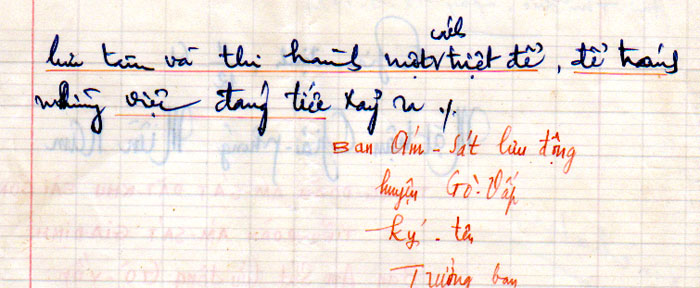 cách
lưu tâm và thi hành một triệt để, để tránh
những việc đáng tiếc xảy ra ./.
Ban Ám-Sát lưu động
huyện Gò-Vấp
ký-tên
Trưởng ban